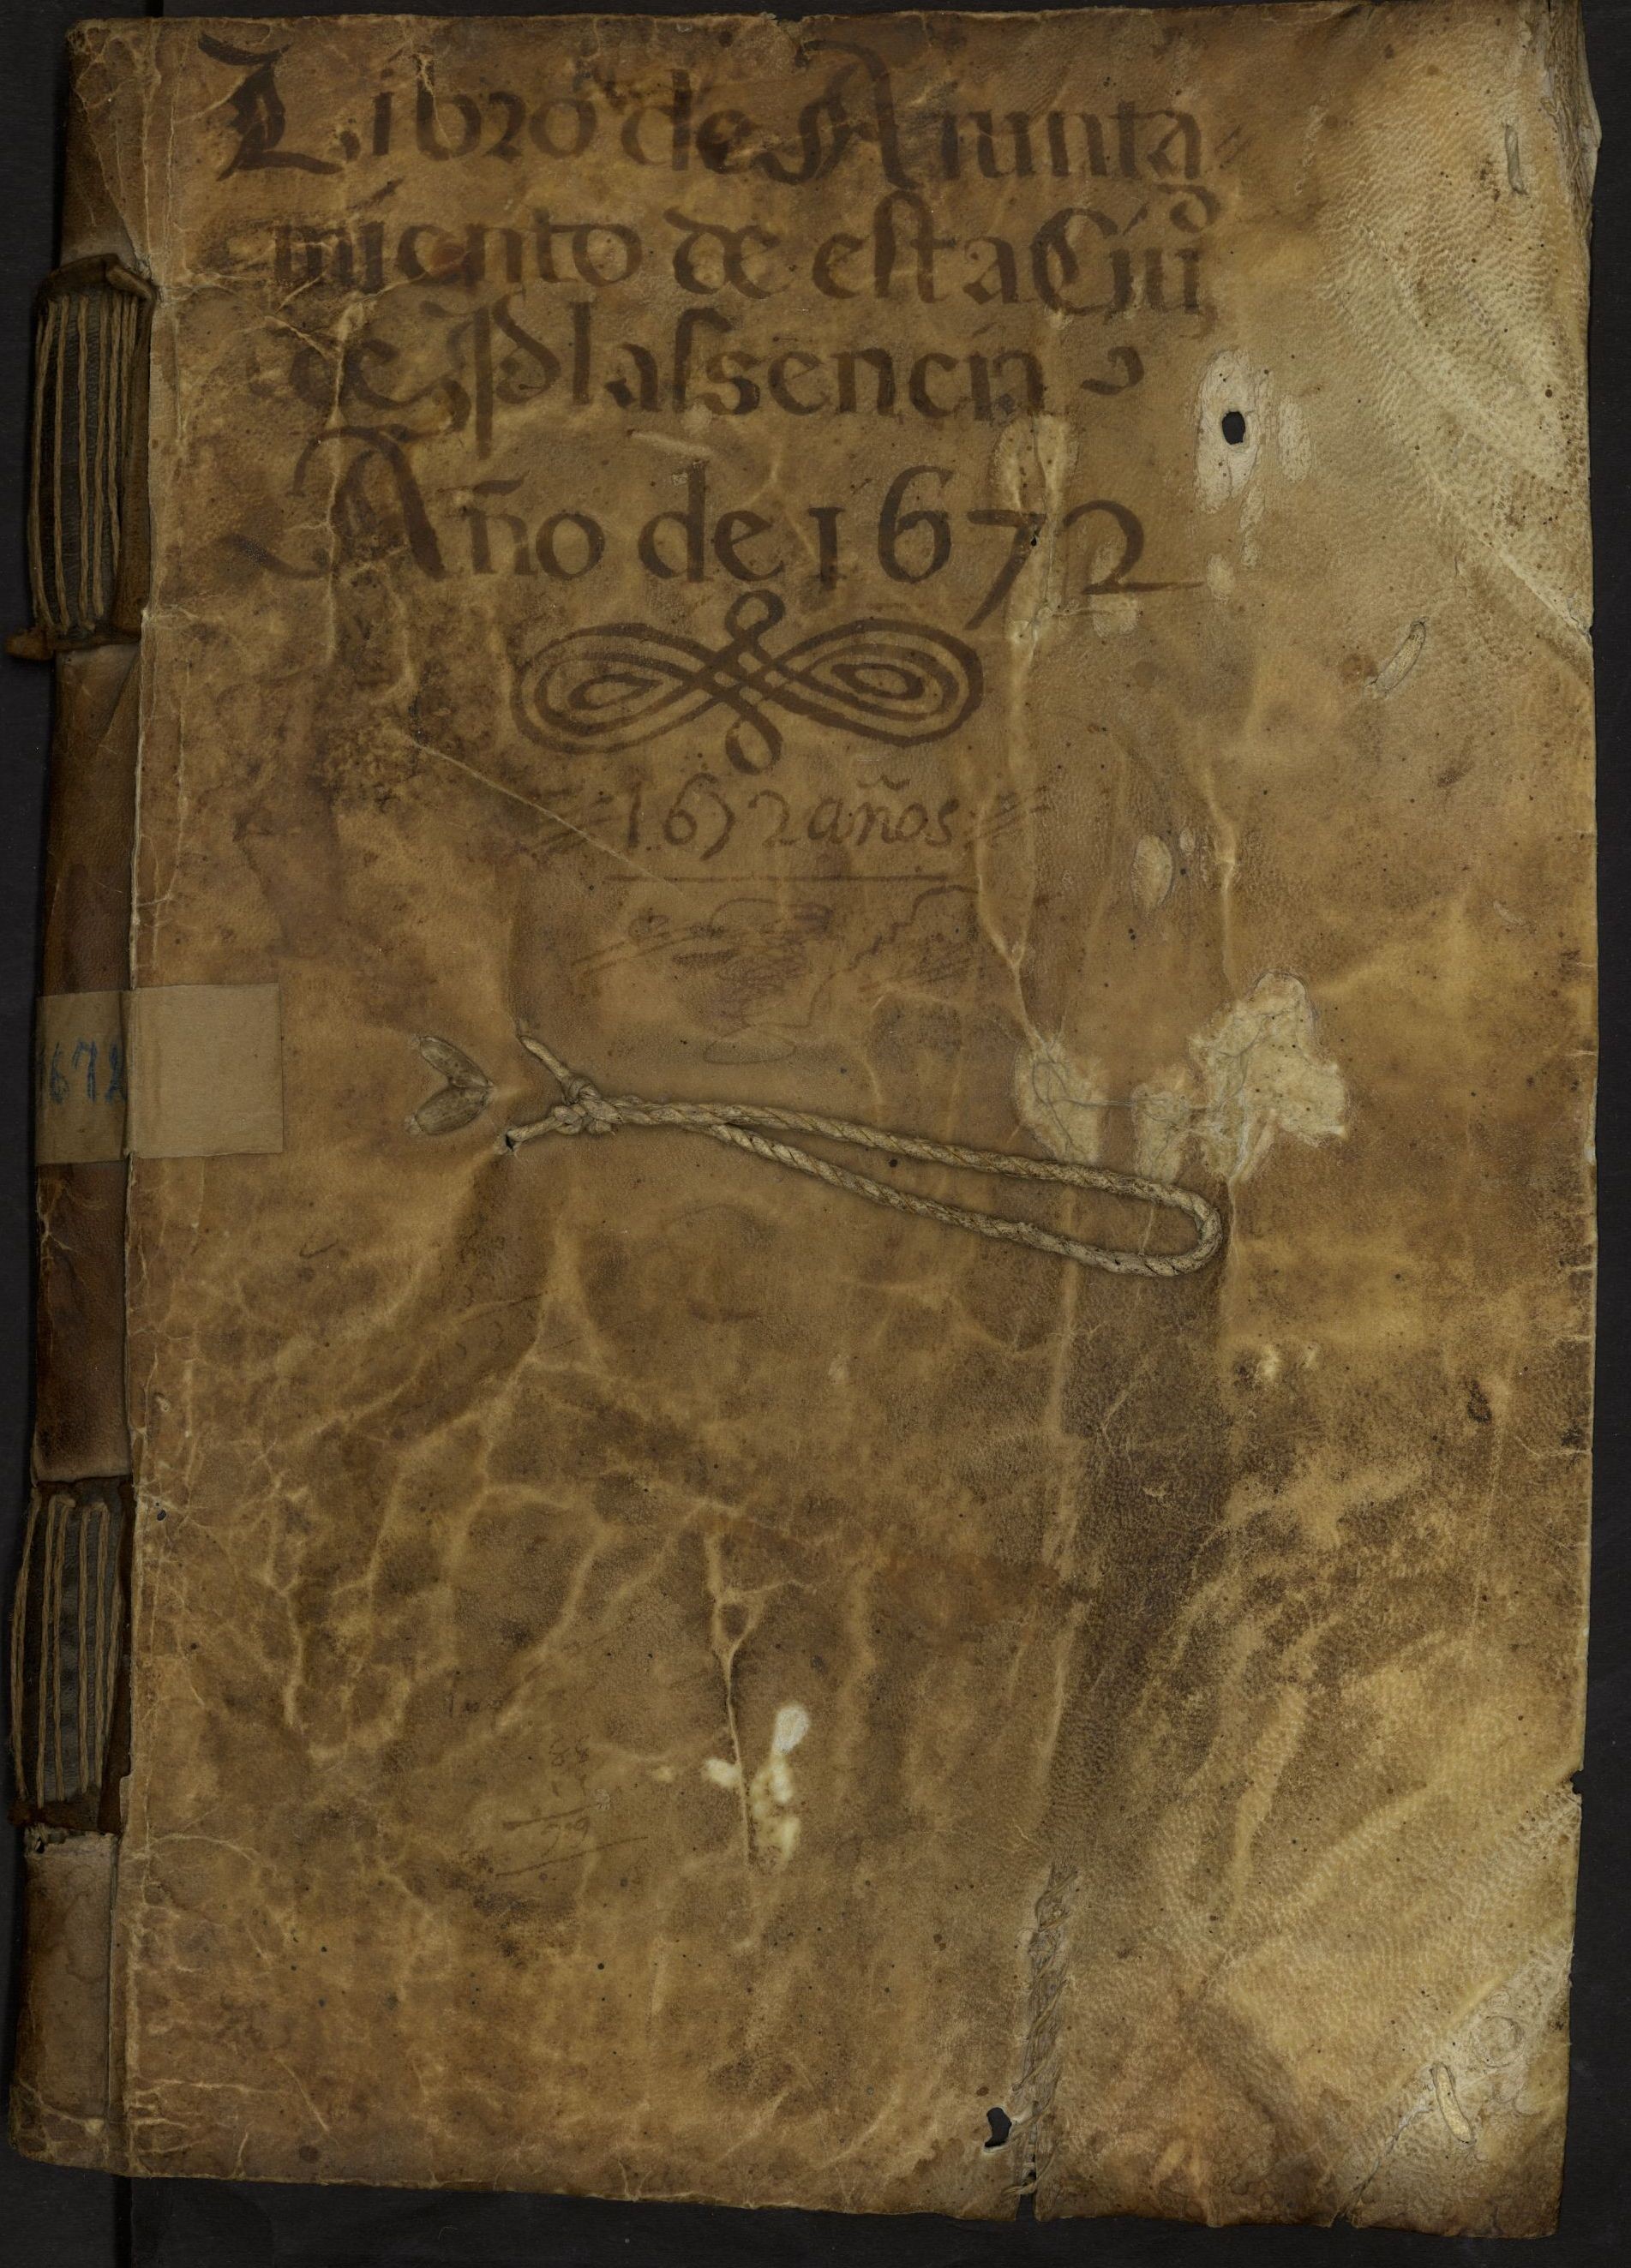 Libro de Aiunta
miento de esta Ciud
de Plassencia
Año de 1672
1672 años
1672
88
99